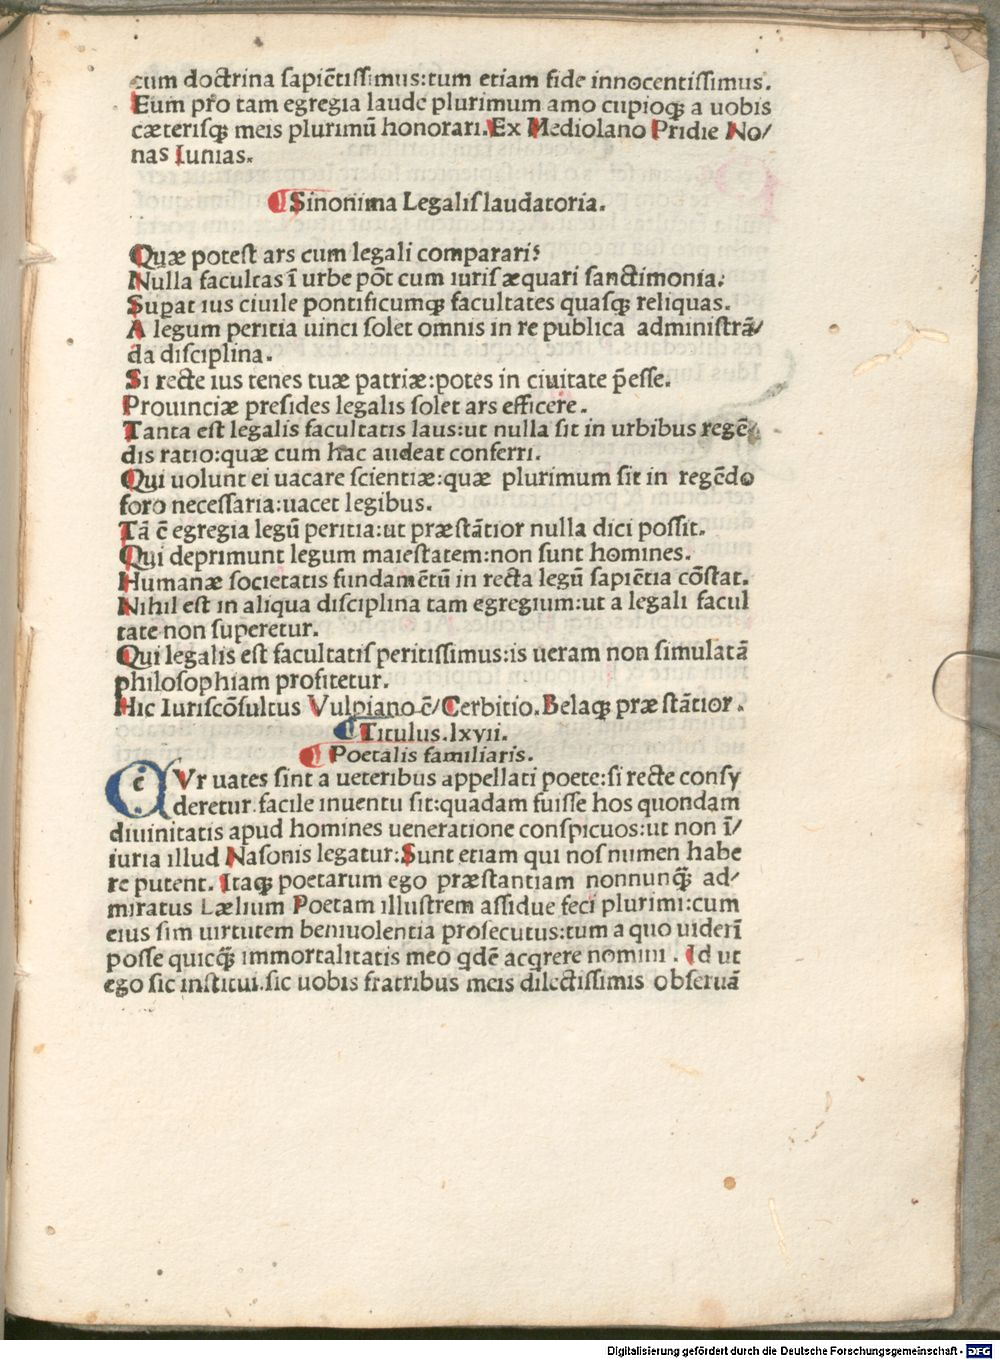 cum doctrina sapiẽtissimus:tum etiam fide innocentissimus.
Eum pro tam egregia laude plurimum amo cupioqꝫ a uobis
cæterisqꝫ meis plurimũ honorari.Ex Mediolano Pridie No/
nas Iunias.
¶Sinonima Legalis laudatoria.
Quæ potest ars cum legali comparari?
Nulla facultas ĩ urbe põt cum iuris æquari sanctimonia:
Suꝑat ius ciuile pontificumqꝫ facultates quasqꝫ reliquas.
A legum peritia uinci solet omnis in re publica administrã/
da disciplina.
Si recte ius tenes tuæ patriæ:potes in ciuitate p̃esse.
Prouinciæ presides legalis solet ars efficere.
Tanta est legalis facultatis laus:ut nulla sit in urbibus regẽ/
dis ratio:quæ cum hac audeat conferri.
Qui uolunt ei uacare scientiæ:quæ plurimum sit in regẽdo
foro necessaria:uacet legibus.
Tã ẽ egregia legũ peritia:ut præstãtior nulla dici possit.
Qui deprimunt legum maiestatem:non sunt homines.
Humanæ societatis fundamẽtũ in recta legũ sapiẽtia cõstat.
Nihil est in aliqua disciplina tam egregium:ut a legali facul
tate non superetur.
Qui legalis est facultatis peritissimus:is ueram non simulatã
philosophiam profitetur.
Hic Iuriscõsultus Vulpiano ẽ/Cerbitio.Belaqꝫ præstãtior.
¶Titulus.lxvii.
¶Poetalis familiaris.
CVr uates sint a ueteribus appellati poete:si recte consy
deretur.facile inuentu sit:quadam fuisse hos quondam
diuinitatis apud homines ueneratione conspicuos:ut non ĩ/
iuria illud Nasonis legatur:Sunt etiam qui nos numen habe
re putent.Itaqꝫ poetarum ego præstantiam nonnunqꝫ̃ ad/
miratus Lælium Poetam illustrem assidue feci plurimi:cum
eius sim uirtutem beniuolentia prosecutus:tum a quo uiderĩ
posse quicqꝫ̃ immortalitatis meo qdẽ acqrere nomini.Id ut
ego sic institui.sic uobis fratribus meis dilectissimis obseruã
Digitalisierung gefördert durch die Deutsche Forschungsgemeinschaft - DFG